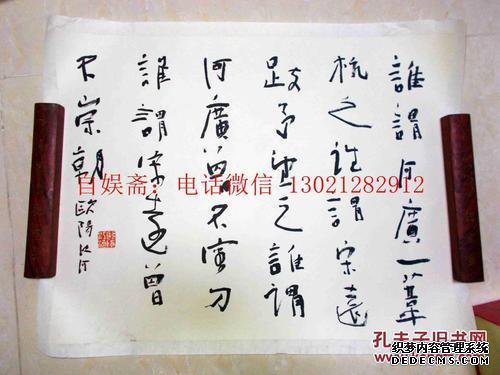 誰謂河廣一葦
杭之誰謂宋遠
跂予望之誰謂
河廣曾不容刀
誰謂宋遠曾
不崇朝 歐陽江河
自娱斋：电话微信 13021282912
孔夫子旧书网
织梦内容管理系统